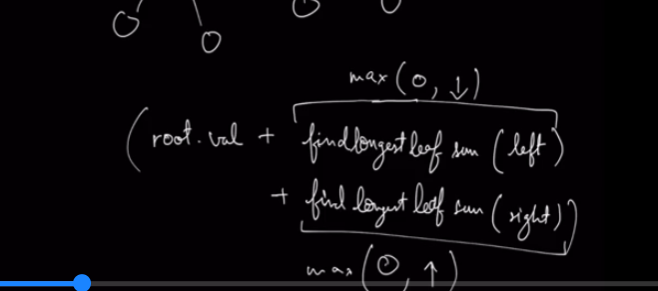 max (0, ↓)
(root.val + findlongestleaf sum (left)
+ find longest leaf sum (right))
max (0, ↑)